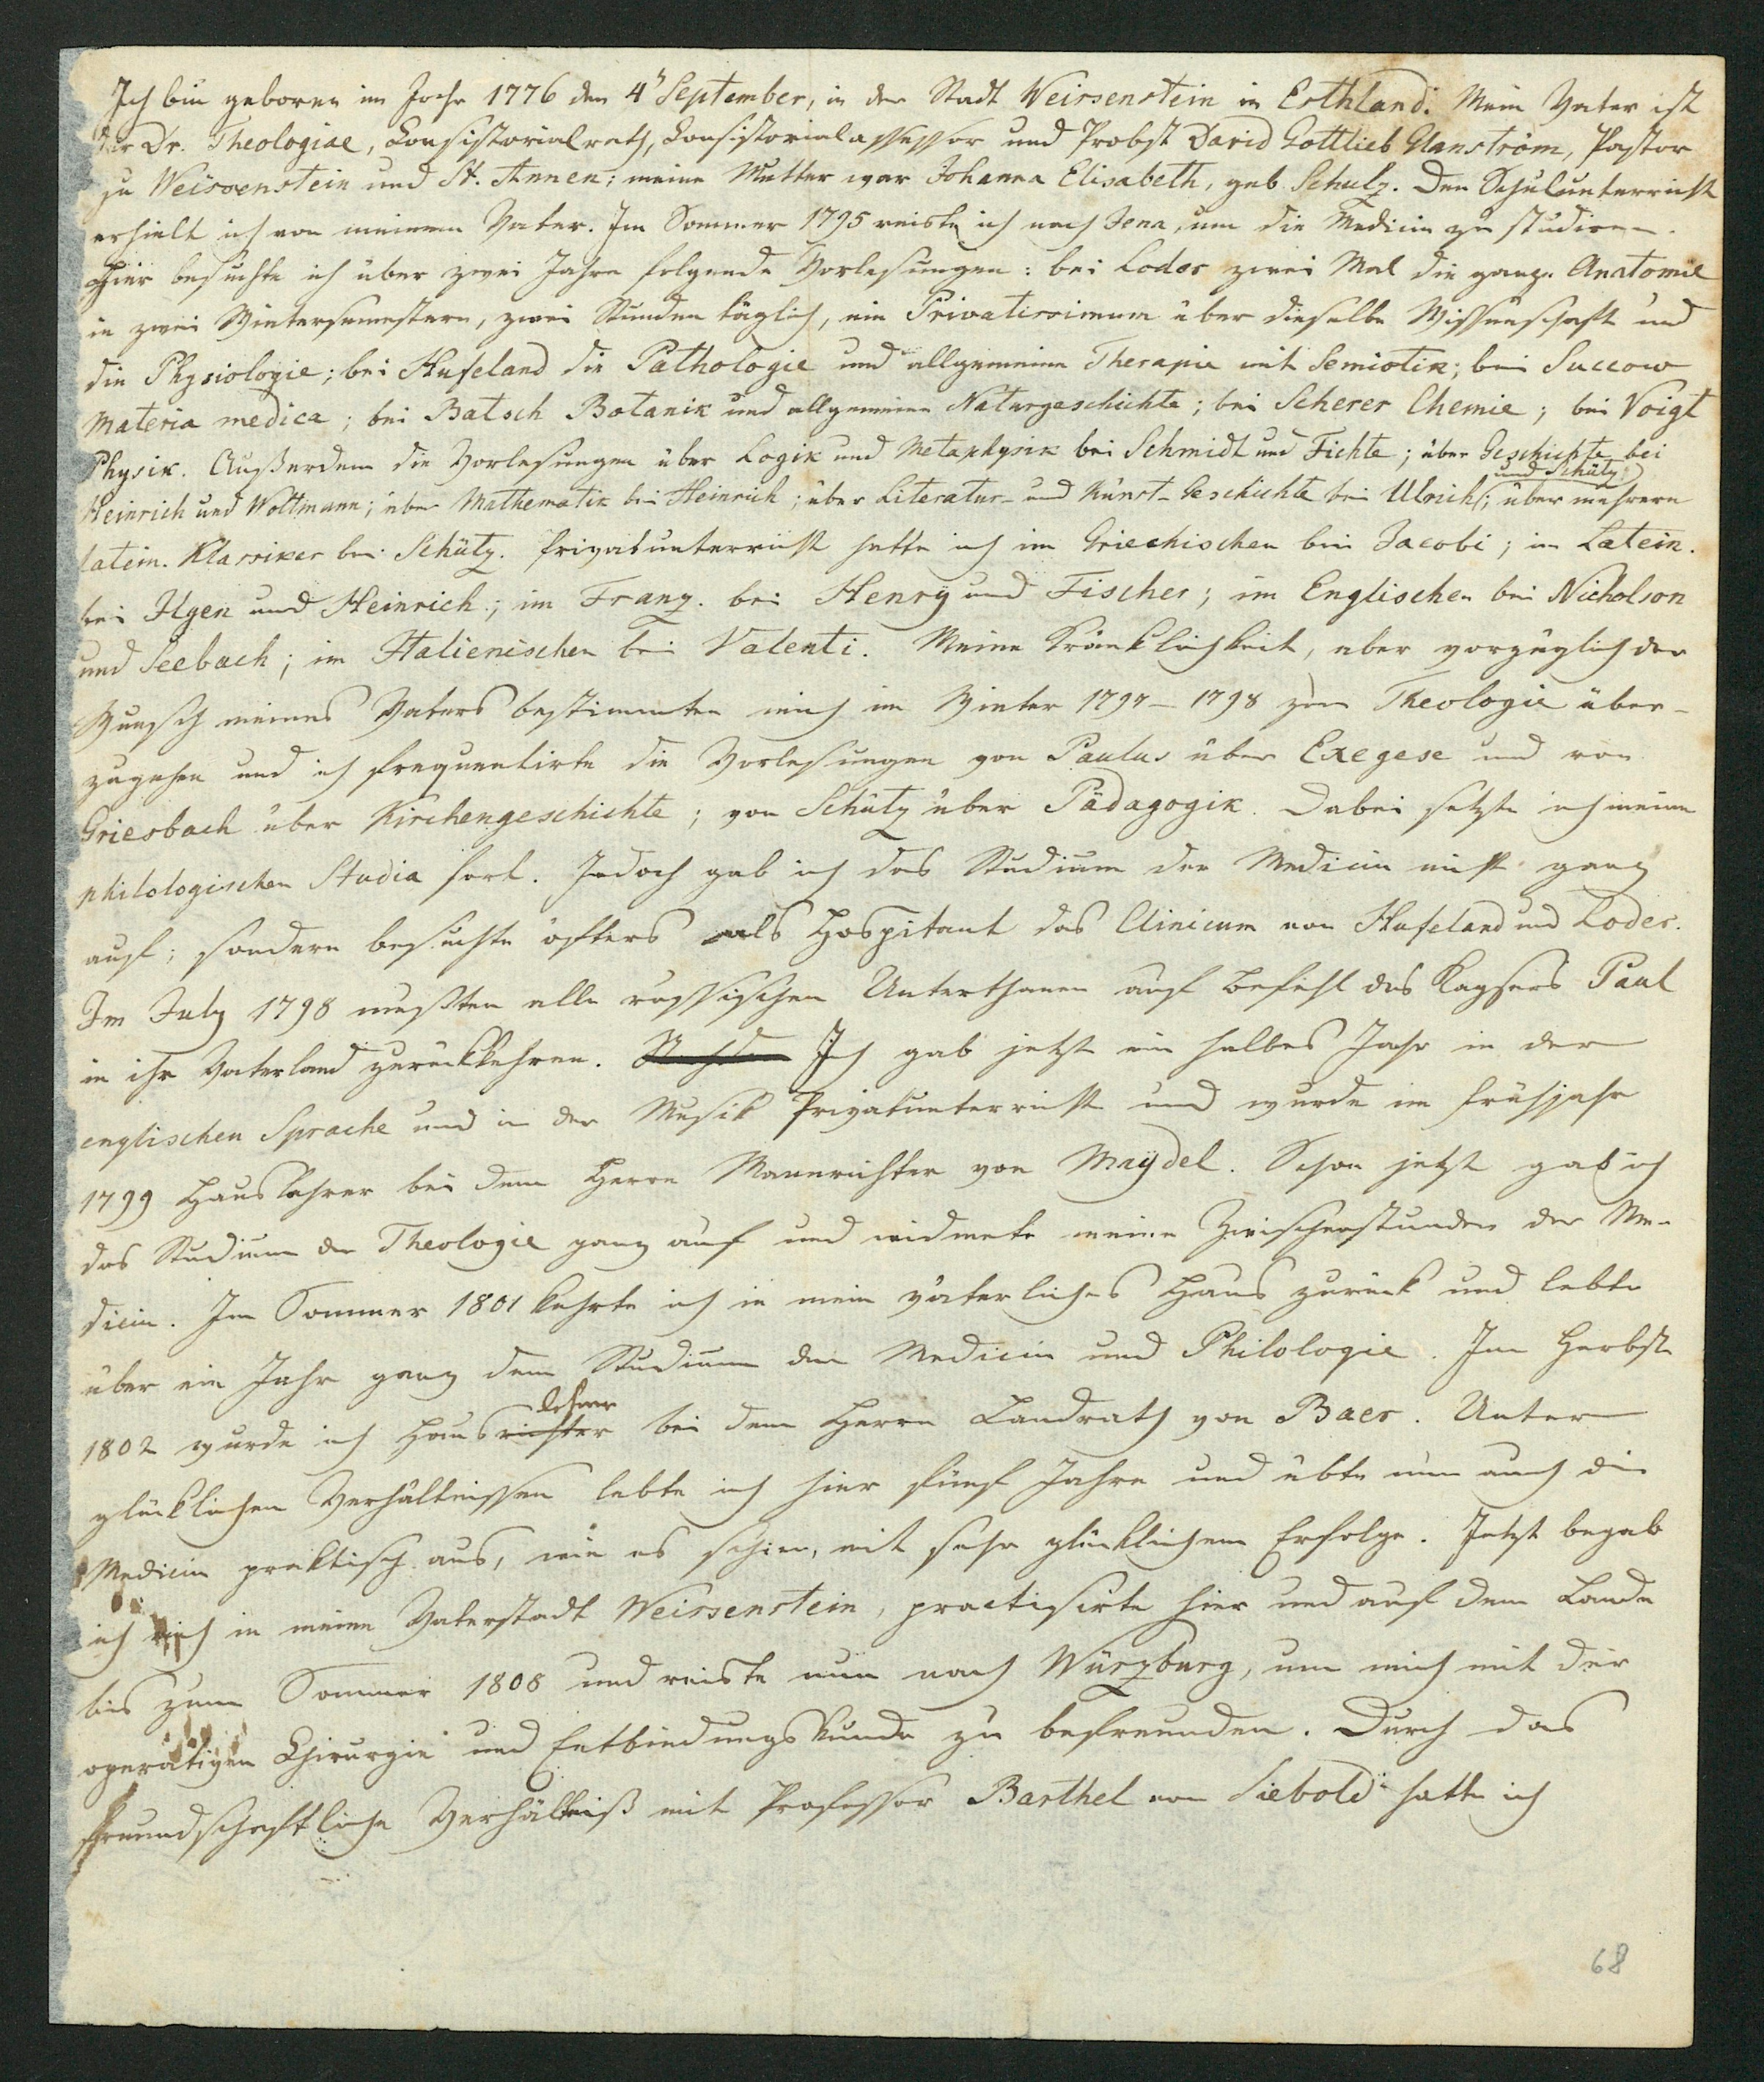 Ich bin geboren im Jahr 1776 den 4n September, in der Stadt Weissenstein in Esthland. Mein Vater ist
der Dr. Theologiae, Consistorialrath, Consistorialassessor und Probst David Gottlieb Glanström, Pastor
zu Weissenstein und St. Annen; meine Mutter war Johanna Elisabeth, geb Schulz. Den Schulunterricht
erhielt ich von meinem Vater. Im Sommer 1795 reiste ich nach Jena, um die Medicin zu studiren.
Hier besuchte ich über zwei Jahre folgende Vorlesungen: bei Loder zwei Mal die ganze Anatomie
in zwei Wintersemestern, zwei Stunden täglich, ein Privatissimum über dieselbe Wissenschaft und
die Physiologie; bei Hufeland die Pathologie und allgemeine Therapie mit Semiotik; bei Succow
Materia medica; bei Batsch Botanik und allgemeine Naturgeschichte; bei Scherer Chemie; bei Voigt
Physik. Außerdem die Vorlesungen über Logik und Metaphysik bei Schmidt und Fichte; über Geschichte bei
Heinrich und Woltmann; über Mathematik bei Heinrich; über Literatur- und Kunst-Geschichte bei Ulrich und Schütz; über mehrere
latein. Klassiker bei Schütz. Privatunterricht hatte ich im Griechischen bei Jacobi; im Latein.
bei Ilgen und Heinrich; im Franz. bei Henry und Fischer; im Englischen bei Nicholson
und Seebach; im Italienischen bei Valenti. Meine Kränklichkeit, aber vorzüglich der
Wunsch meines Vaters bestimmten mich im Winter 1797-1798 zur Theologie über-
zugehen und ich frequentirte die Vorlesungen von Paulus über Exegese und von
Griesbach über Kirchengeschichte; von Schütz über Pädagogik. Dabei setzte ich meine
philologischen Studia fort. Jedoch gab ich das Studium der Medicin nicht ganz
auf; sondern besuchte öfters als Hospitant das Clinicum von Hufeland und Loder.
Im July 1798 mußten alle russischen Unterthanen auf Befehl des Kaysers Paul
in ihr Vaterland zurückkehren. Ich gab jetzt ein halbes Jahr in der
englischen Sprache und in der Musik Privatunterricht und wurde im Frühjahr
1799 Hauslehrer bei dem Herrn Mannrichter von Maydel. Schon jetzt gab ich
das Studium der Theologie ganz auf und widmete meine Zwischenstunden der Me-
dicin. Im Sommer 1801 kehrte ich in mein väterliches Haus zurück und lebte
über ein Jahr ganz dem Studium der Medicin und Philologie. Im Herbst
1802 wurde ich Hauslehrer bei dem Herrn Landrath von Baer. Unter
glücklichen Verhältnissen lebte ich hier fünf Jahre und übte nun auch die
Medicin praktisch aus, wie es schien, mit sehr glücklichem Erfolge. Jetzt begab
ich mich in meine Vaterstadt Weissenstein, practisirte hier und auf dem Lande
bis zum Sommer 1808 und reiste nun nach Würzburg, um mich mit der
operativen Chirurgie und Entbindungskunde zu befreunden. Durch das
freundschaftliche Verhältniß mit Professor Barthel von Siebold hatte ich
68